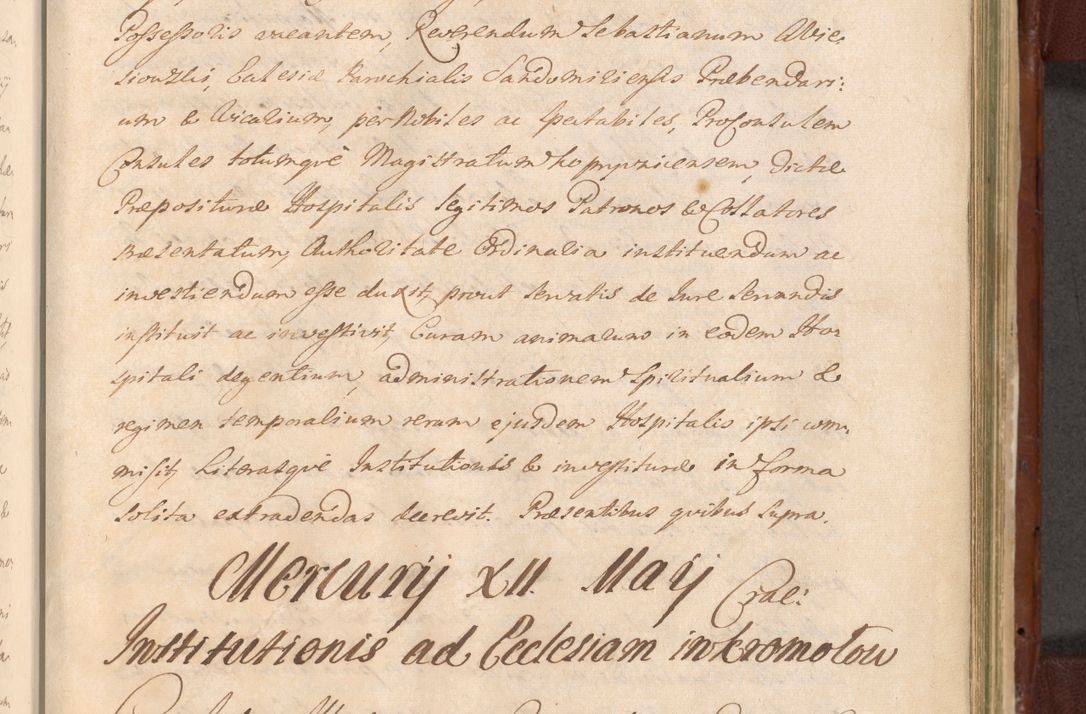 Possessoris vacantem, Reverendum Sebastianum Obie,
sionzki, Eclesiæ Parochialis Sandomiriensis Præbendari:
um & Vicarium, per Nobiles ac spectabiles, ProConsulem
Consules totumque Magistratum Koprznicensem, dictæ
Præposituræ Hospitalis legitimos Patronos & Collatores
præsentatum, Authoritate Ordinaria instituendum ac
investiendum esse duxit, prout servatis de Jure servandis
instituit ac investivit, Curam animarum in eodem Hos-
pitali degentium, administrationem Spiritualium &
regimen temporalium rerum ejusdem Hospitalis ipsi com,
misit, Literasque Institutionis & investituræ in forma
solita extradendas decrevit. Præsentibus quibus supra.
Mercurij XII. Maij Crac:
Institutionis ad Ecclesiam in Kromołow